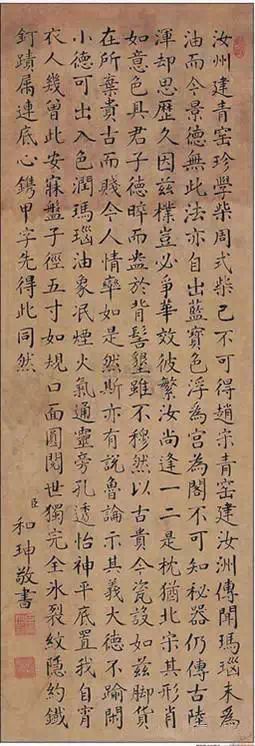 汝州建青窑珍學柴周式柴已不可得趙宋青窑建汝洲傳聞瑪瑙末為
油而今景德無此法亦自出藍寶色浮為宮為閣不可知秘器仍傳古陸
渾却思歷久因兹樸豈必爭華效彼繁汝尚逢一二是枕猶北宗其形肖
如意色具君子德晬而盎於背髻墾雖不穆然以古貴今瓷設如兹脚貨
在所棄貴古而賤今人情率如是然斯亦有說魯論示其義大德不踰閑
小德可出入色潤瑪瑙油象泯煙火氣通靈旁孔透怡神平底置我自宵
衣人幾曾此安寐盤子徑五寸如規口面圓閱世獨完全氷裂紋隱約鐵
釘蹟屬連底心鐫甲字先得此同然
臣和珅敬書